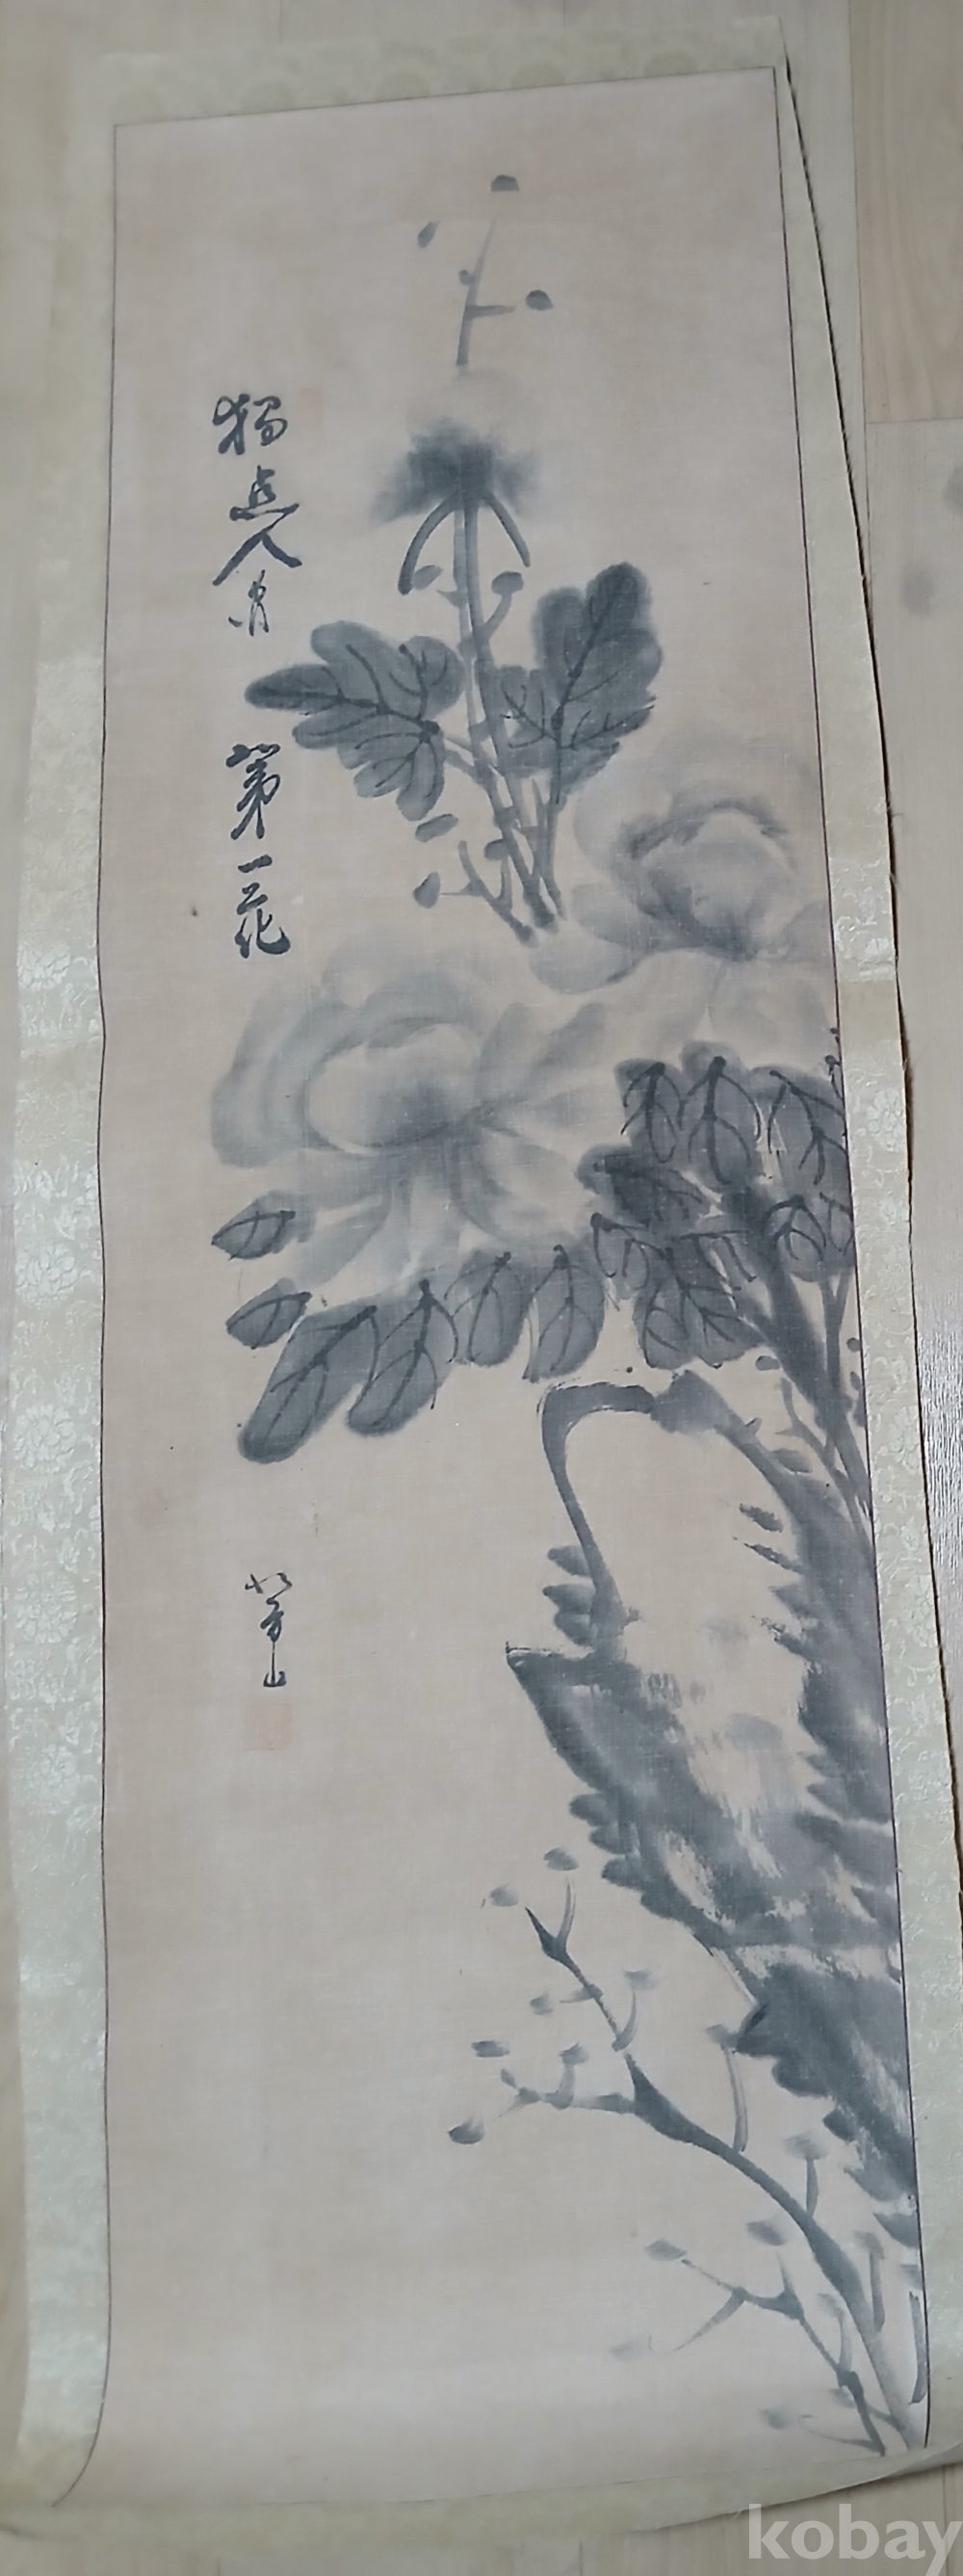 獨占人間 第一花
芳山
kobay